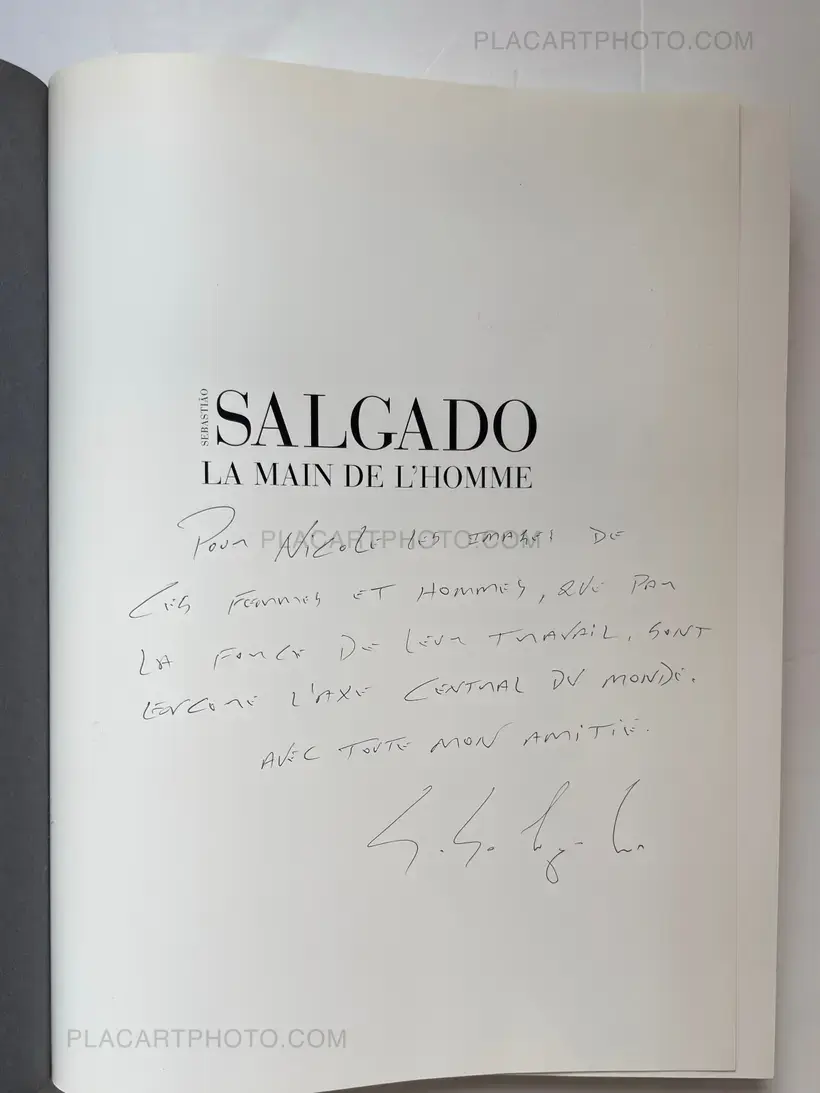 PLACARTPHOTO.COM
SEBASTIÃO
SALGADO
LA MAIN DE L'HOMME
POUR NICOLE LES IMAGES DE
PLACARTPHOTO.COM
CES FEMMES ET HOMMES, QUE PAR
LA FORCE DE LEUR TRAVAIL, SONT
ENCORE L'AXE CENTRAL DU MONDE.
AVEC TOUTE MON AMITIÉ.
PLACARTPHOTO.COM